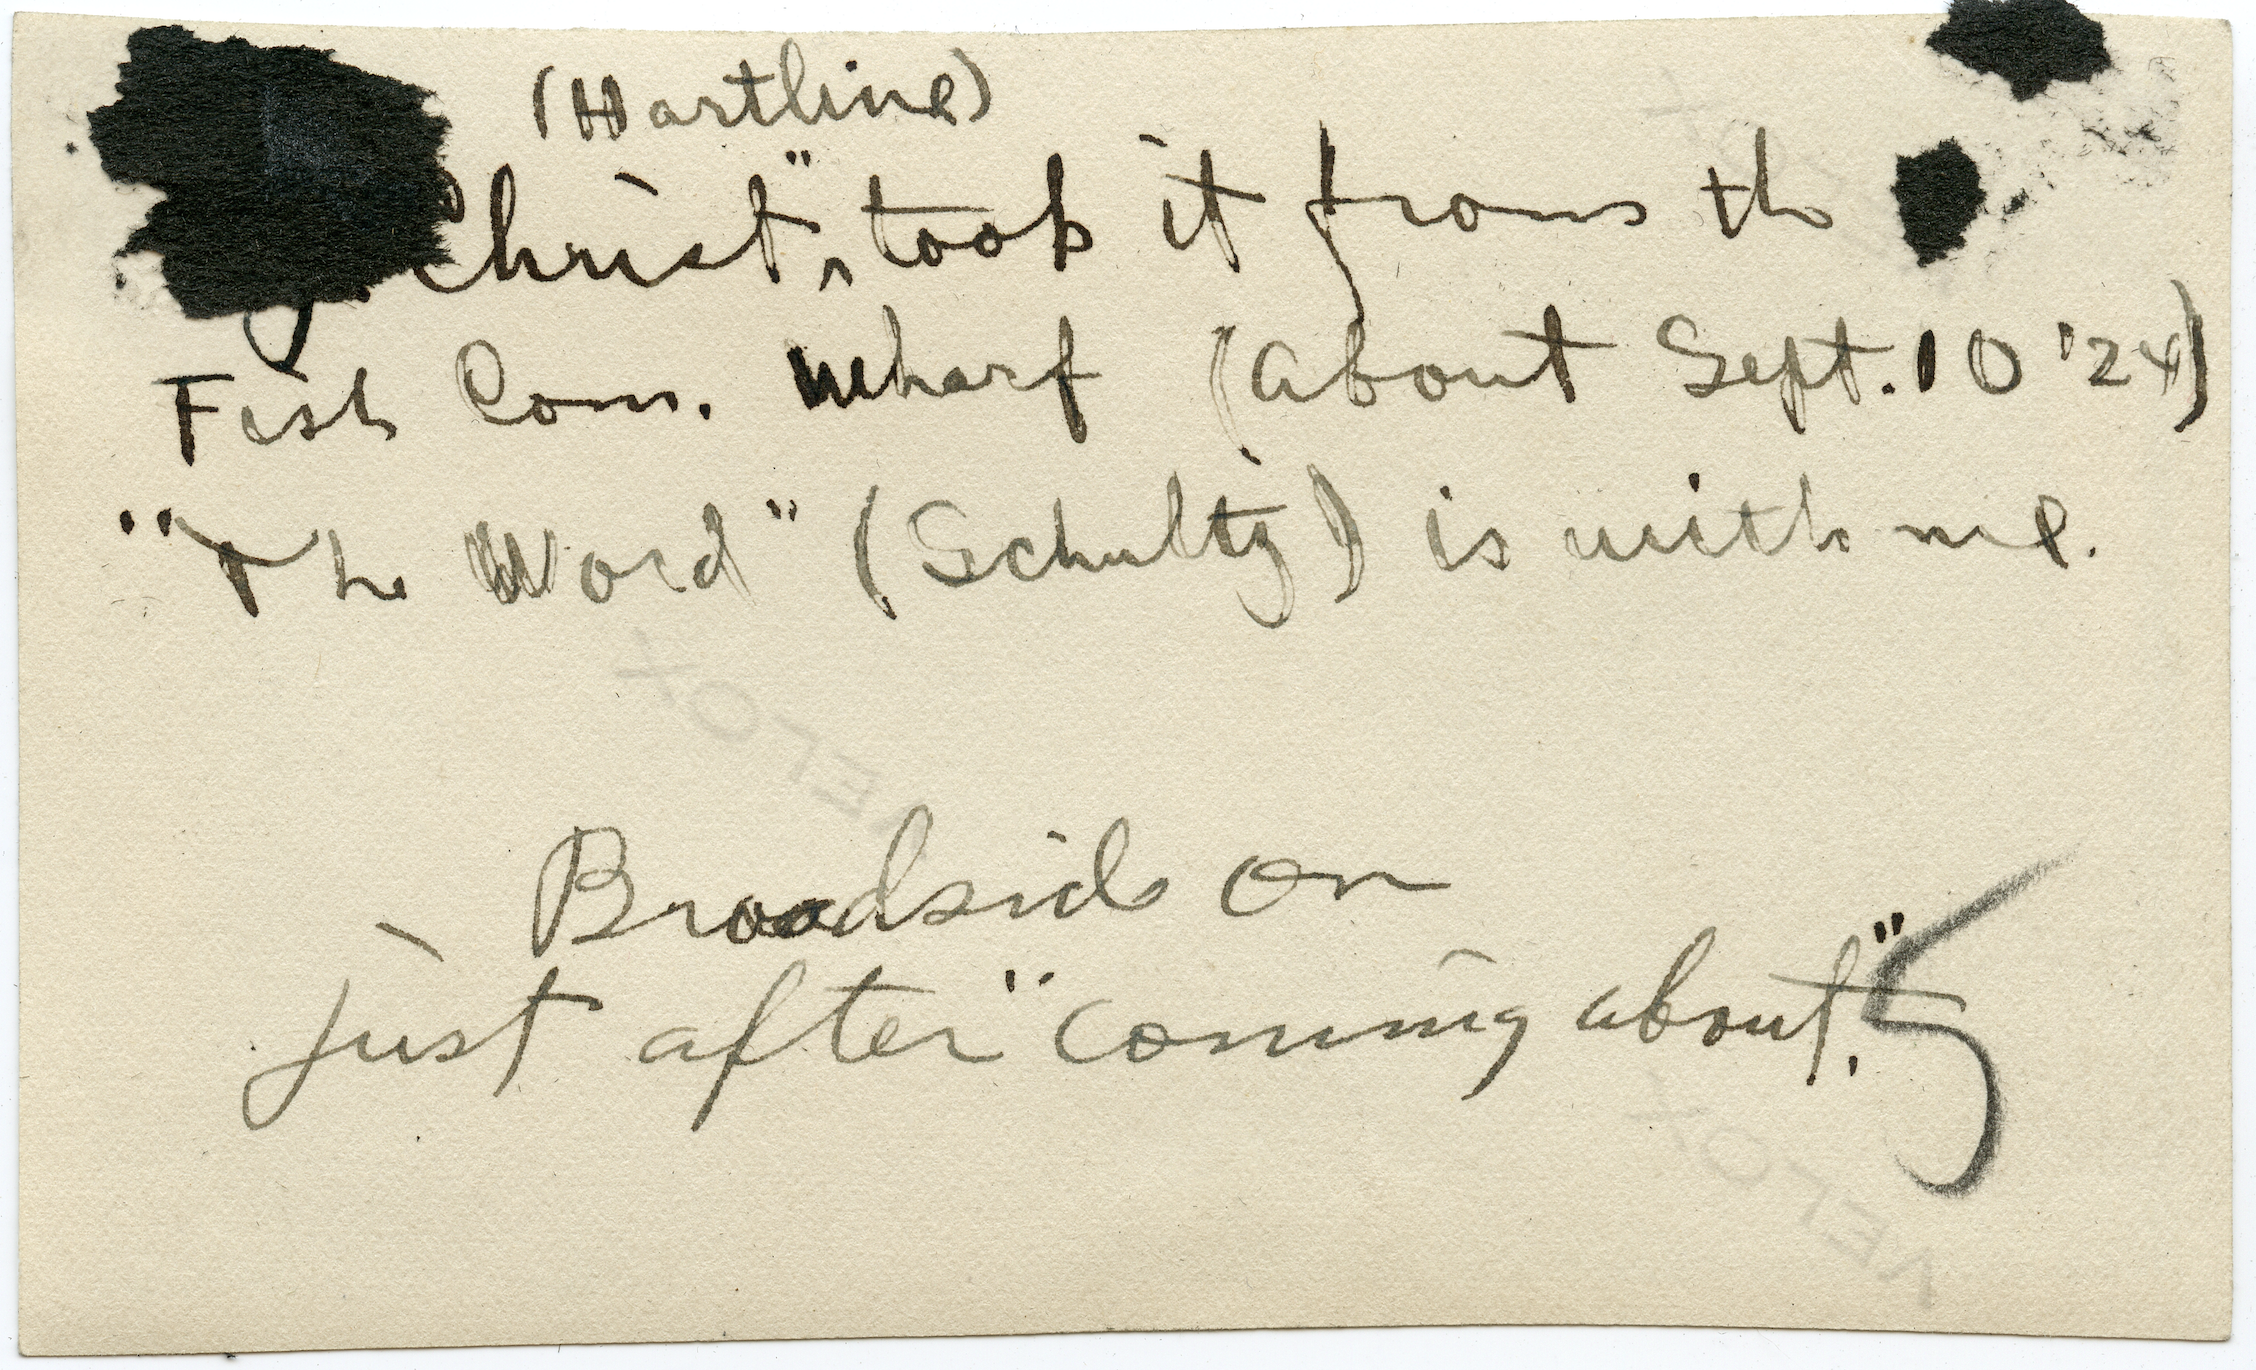 (Hartline)
Christ", took it from the
Fish Com. Wharf (about Sept. 10 '24)
"The Word" (Schultz) is with me.
VELOX
Broadside on
just after "coming about."
VELOX